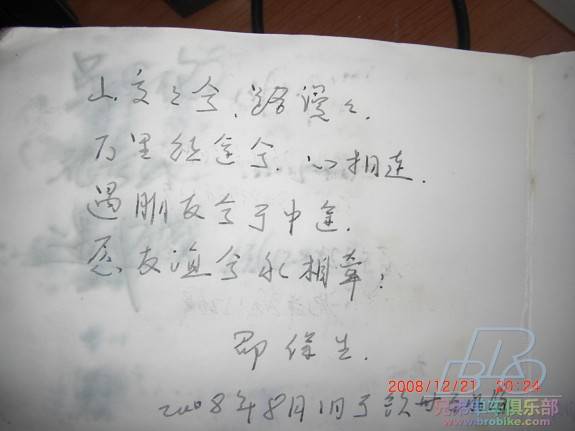 山交々兮,路漫々.
万里结途兮.心相连.
遇朋友兮于中途.
愿友谊兮永相牵!
邵保生.
2008年8月1日于
2008/12/21 20:24
兄弟单车俱乐部
www.brobike.com